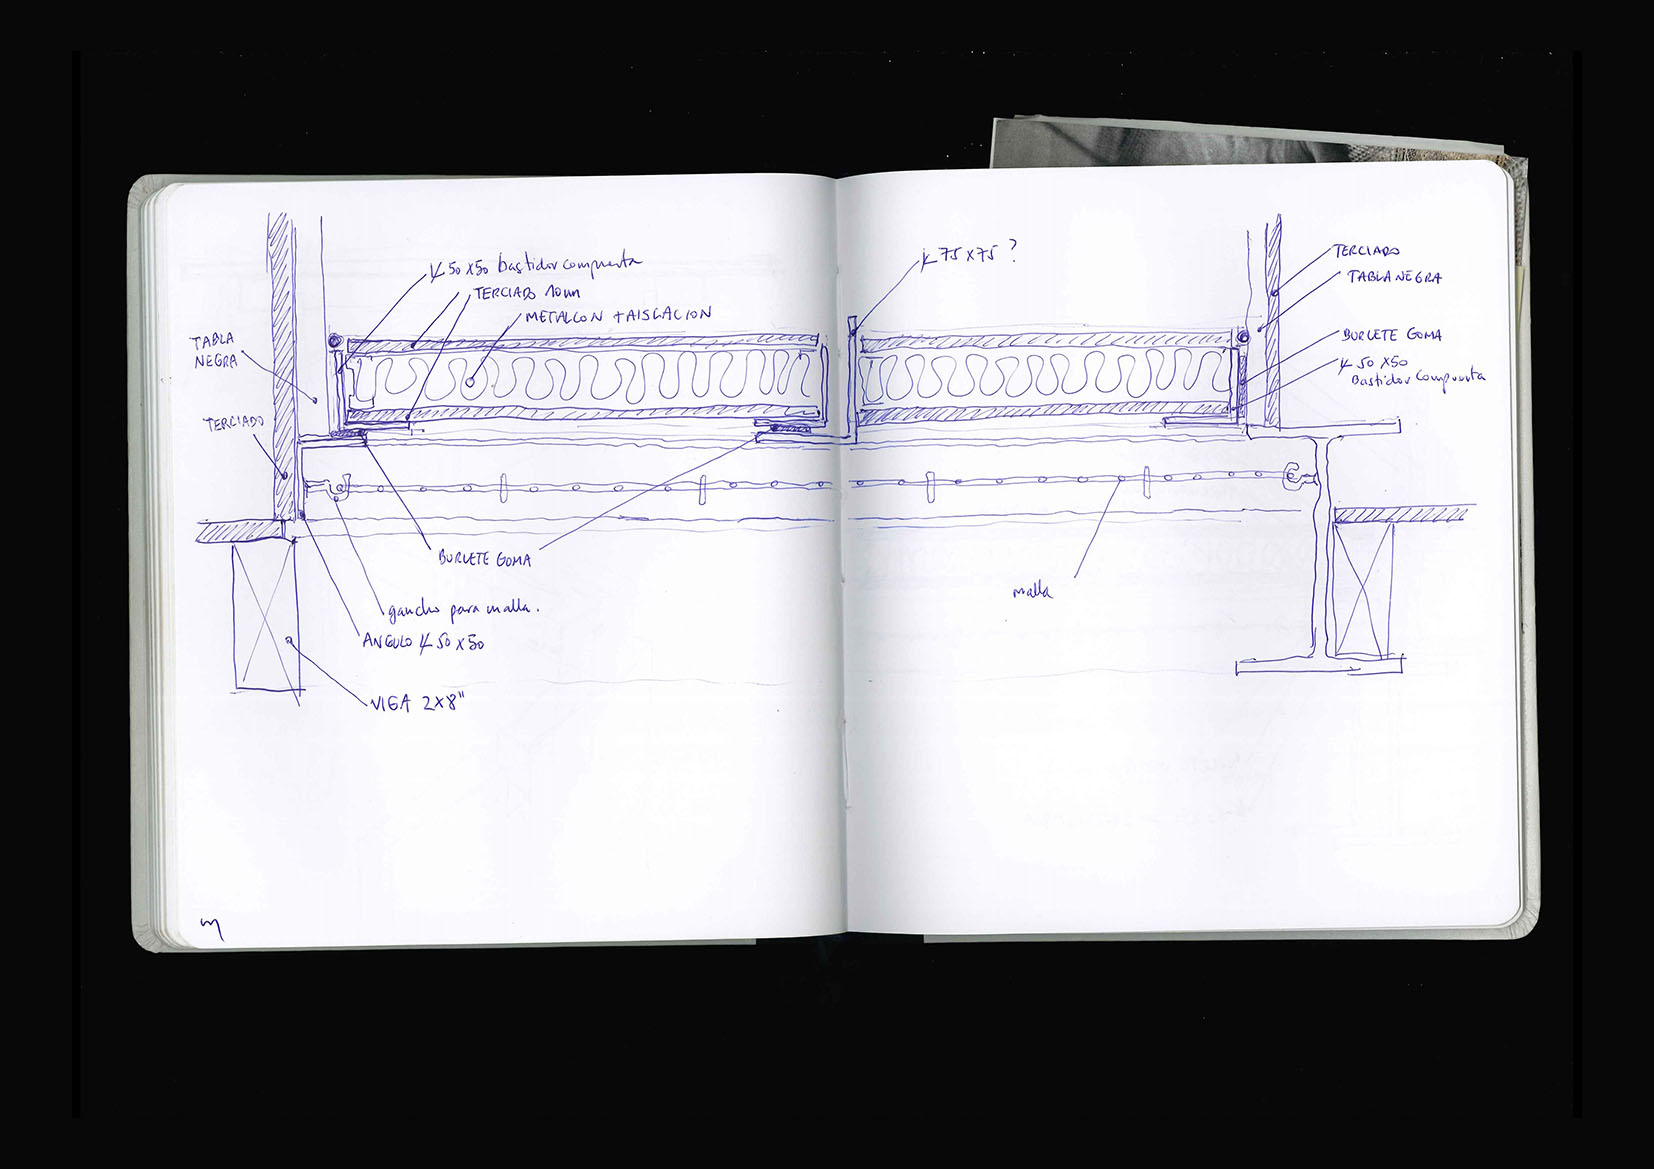 ∠ 50x50 bastidor compuerta
TERCIADO 10mm
METALCON + AISLACION
TABLA
NEGRA
TERCIADO
BURLETE GOMA
gancho para malla.
ANGULO ∠ 50x50
VIGA 2x8"
∠ 75x75 ?
TERCIADO
TABLA NEGRA
BURLETE GOMA
∠ 50x50
Bastidor compuerta
malla